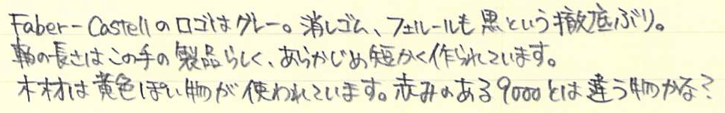 Faber-Castellのロゴはグレー。消しゴム、フェルールも黒という徹底ぶり。
軸の長さはこの手の製品らしく、あらかじめ短かく作られています。
木材は黄色ぽい物が使われています。赤みのある9000とは違う物かな?